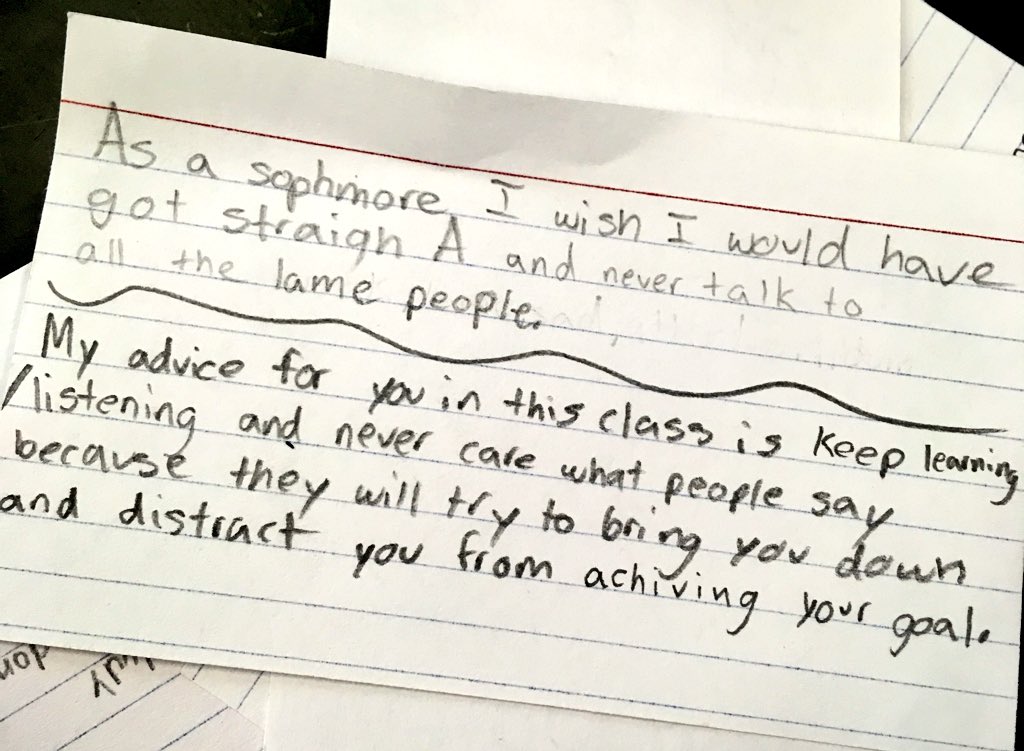 As a sophmore, I wish I would have
got straign A and never talk to
all the lame people.
My advice for you in this class is keep learning
/listening and never care what people say
because they will try to bring you down
and distract you from achiving your goal.